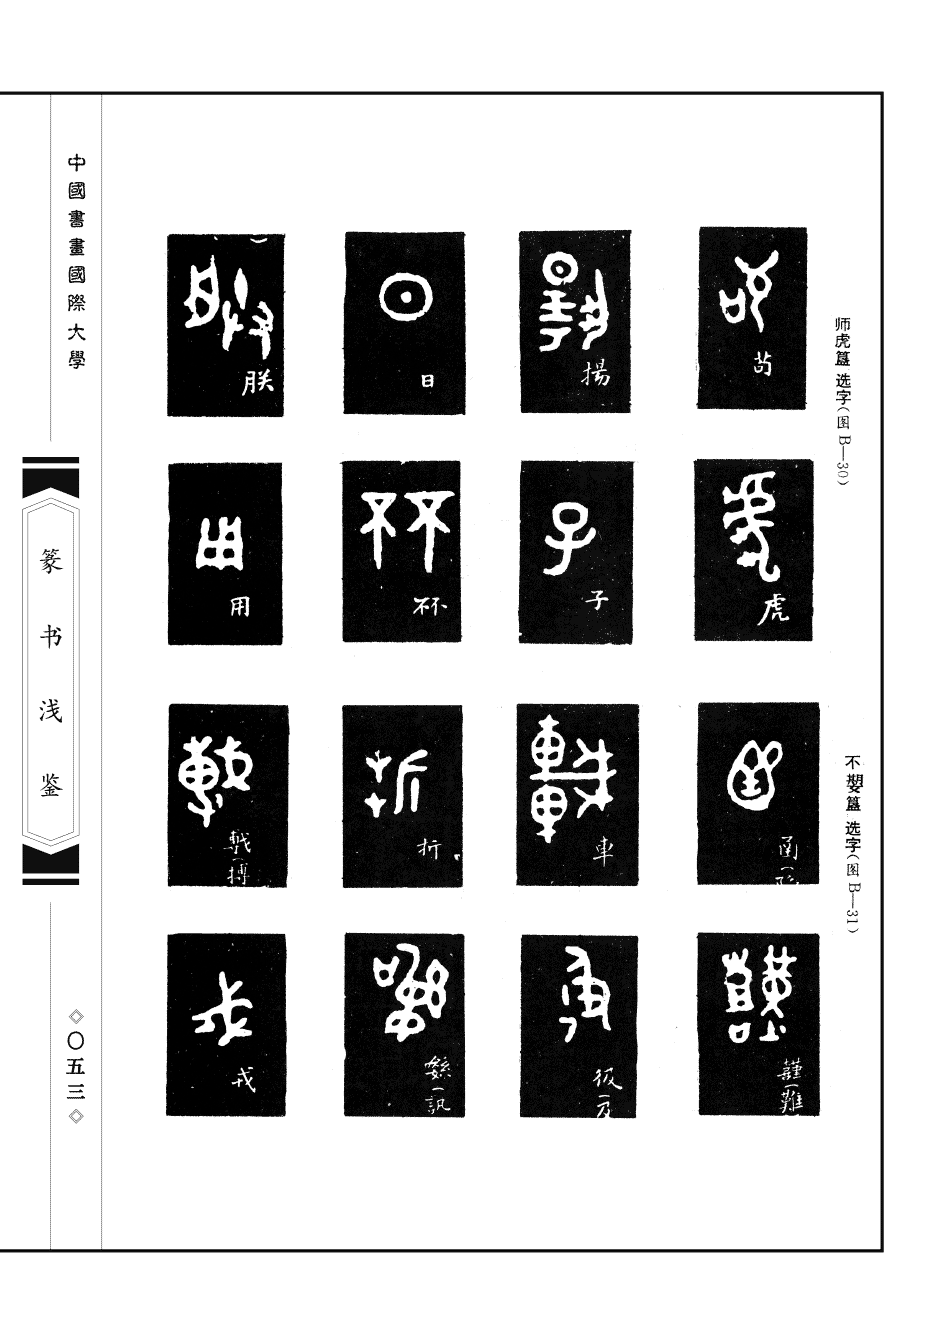 师虎簋 选字(图 B—30)
苟
揚
日
朕
虎
子
不不
用
不𡢁簋 选字(图 B—31)
車
折
䡴(搏
謹(難
彶(及
訊
戎
中國書畫國際大學
篆书浅鉴
◇〇五三◇